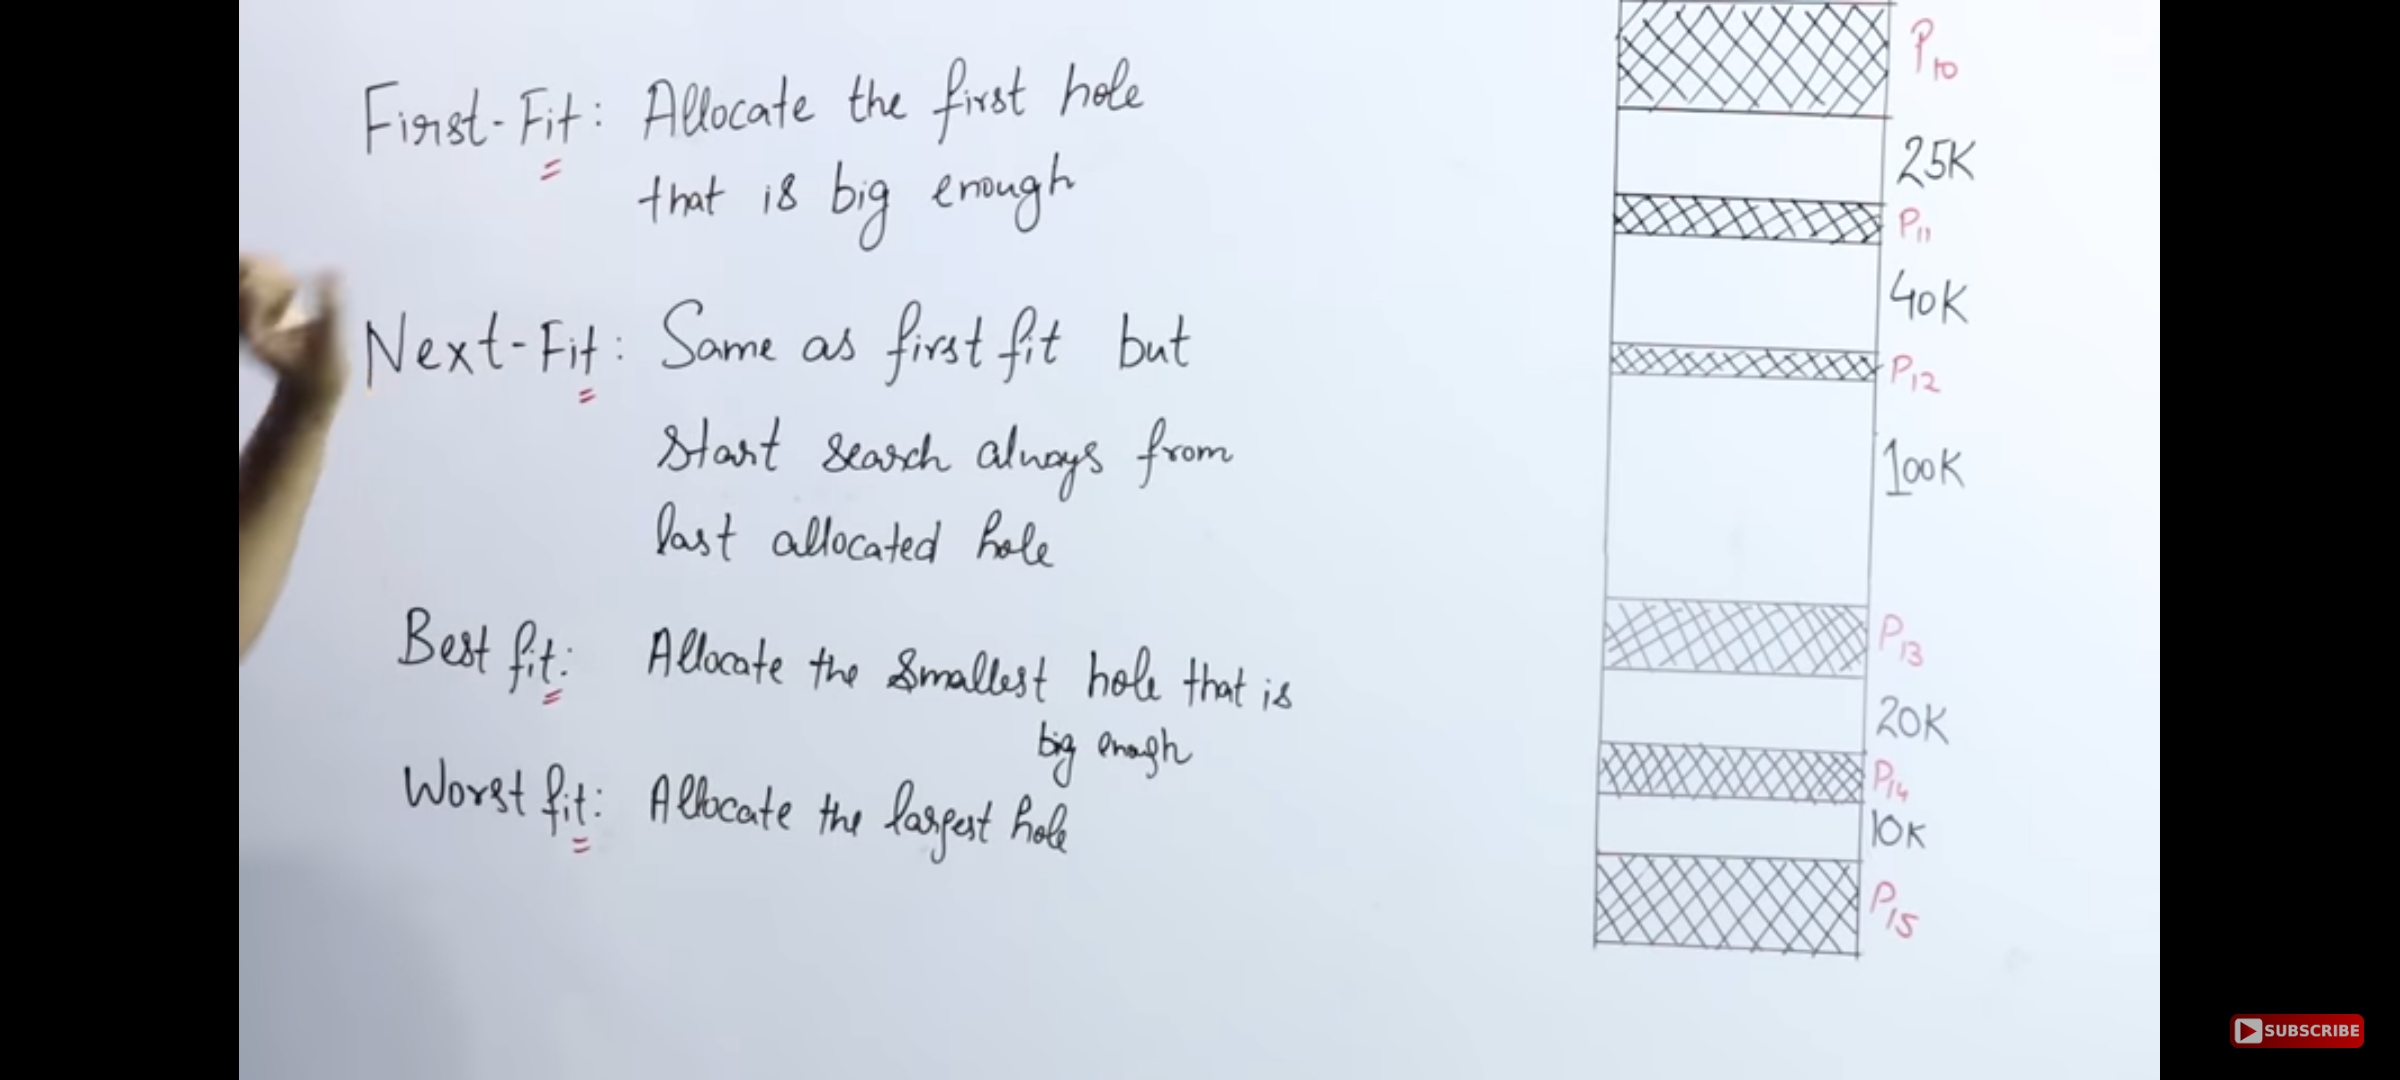 First-Fit: Allocate the first hole
that is big enough
Next-Fit: Same as first fit but
start search always from
last allocated hole
Best fit: Allocate the smallest hole that is
big enogh
Worst fit: Allocate the largest hole
P10
25K
P11
40K
P12
100K
P13
20K
P14
10K
P15
SUBSCRIBE